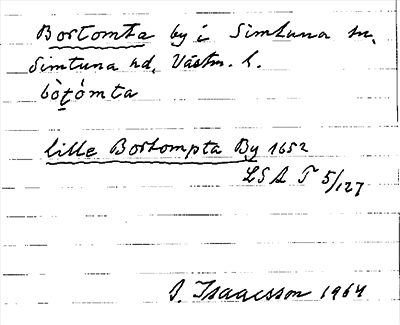 Bortomta by i Simtuna sn,
Simtuna hd, Västm. l.
bò̀ţómta
lille Bortompta By 1652
LSA T 5/127
S. Isaacsson 1964